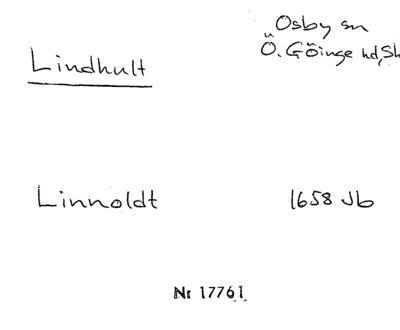 Osby sn
Lindhult
Ö. Göinge hd, Sk
Linnoldt
1658 Jb
Nr 17761